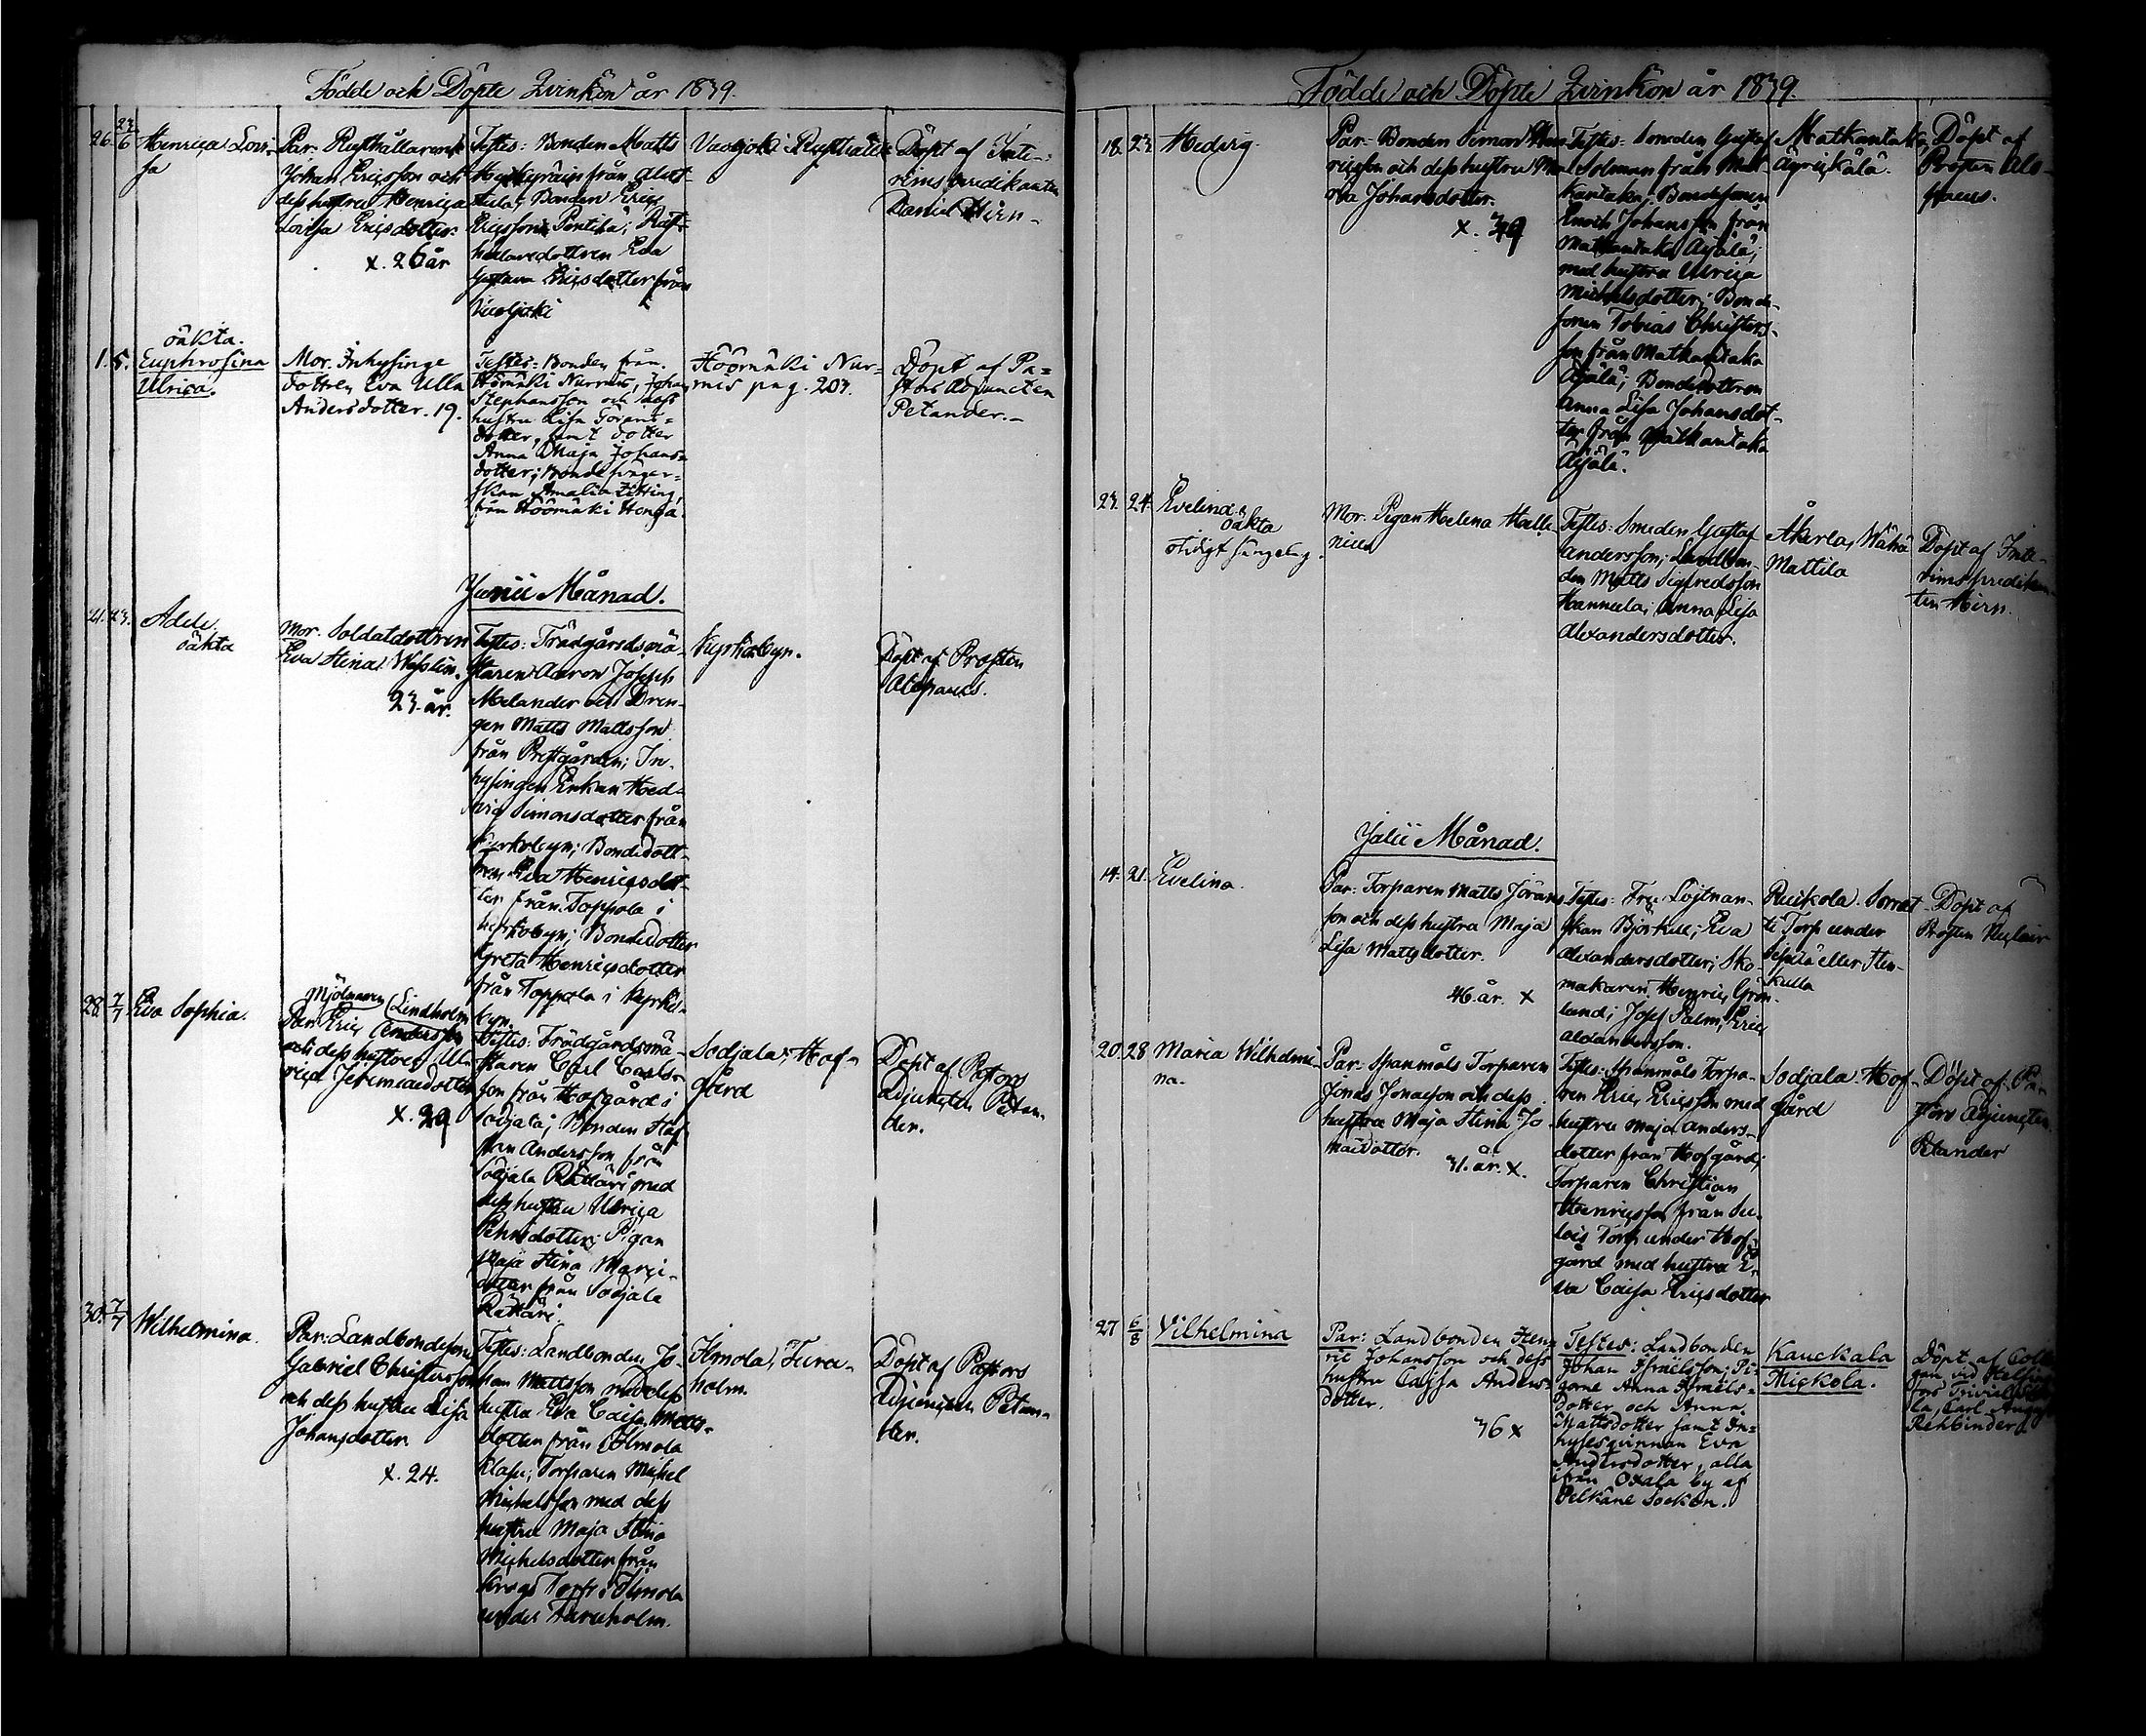 Födde och Döpte Qvinkön år 1839.
26. 23/6 Henrica Lovi-
sa
Par. Rusthållaren
Johan Ericsson och
dess hustru Henrica
Lovisa Ericsdotter.
x. 26 år
Testes: Bonden Matts
från
Bonden Eric
Ericsson Pentilä; Rust-
hållaredottren Eva
Gustava Ericsdotter från
Vuoljoki
Vuoljoki Rusthåll
Döpt af Inte-
rims Predikanten
Daniel Hirn-
oäkta.
1. 5. Euphrosina
Ulrica.
Mor. Inhysinge
dottren Eva Ulla
Andersdotter. 19.
Testes: Bonden från
Höömäki Nurmis, Johan
Stephansson och dess
hustru Lisa Görans=
dotter, samt dotter
Anna Maja Johans=
dotter; Bonde
Amalia
från Höömäki Honga.
Höömäki Nur=
mis pag. 203.
Döpt af Pa=
stors Adjuncten
Petander.-
Junii Månad.
21. 23. Adele.
oäkta
Mor. Soldatdottren
Eva Stina Wesslin.
23. år.
Testes: Trädgårdsmä-
staren Aaron Joseph
Melander och Dren-
gen Matts Mattsson
från Prestgården; In-
hysingen Enkan Hed-
vig Simonsdotter från
Kyrkobyn; Bondedott-
ren Eva Henricsdot-
ter från Toppola i
Kyrkobyn; Bondedotter
Greta Henricsdotter
från Toppola i Kyrko-
byn.
Kyrkobyn.
Döpt af Prosten
Alopaeus.
28. 7/7 Eva Sophia.
Mjölnaren (Lindholm
Par: Eric Andersson
och dess hustru Ul-
rica Jeremiædotter
x. 39
Testes: Trädgårdsmä-
staren Carl Carls-
son från Hofgård i
Sodjala; Bonden Staf-
fan Andersson från
Sodjala Rättäri med
dess hustru Ulrica
Pehrsdotter; Pigan
Maja Stina Marci-
dotter från Sodjala
Rättäri.
Sodjala Hof-
gård
Döpt af Pastors
Adjuncten Petan-
der.
30. 7/7 Wilhelmina.
Par: Landbondesonen
Gabriel Christersson
och dess hustru Lisa
Johansdotter
x. 24.
Testes: Landbonden Jo-
han Mattsson med dess
hustru Eva Caisa Matts-
dotter från Ilmola
Klasu; Torparen Michel
Michelsson med dess
hustru Maja Stina
Michelsdotter från
Krogs Torp i Ilmola
under Turuholm.
Ilmola, Turu-
holm.
Döpt af Pastors
Adjuncten Petan-
der.
Födde och Döpte Qvinkön år 1839.
18. 23 Hedvig.
Par: Bonden Simon Hen-
ricsson och dess hustru Ma-
ria Johansdotter.
x. 39
Testes: Bonden Gustaf
Salomon från Mat-
kantaka; Bondesonen
Enoch Johansson från
Matkantaka Äijälä;
med hustru Ulrica
Michelsdotter; Bonde-
sonen Tobias Christers-
son från Matkantaka
Äijälä; Bondedottren
Anna Lisa Johansdot-
ter från Matkantaka
Äijälä.
Matkantaka,
Döpt af
Prosten Alo-
paeus.
23. 24. Evelina
oäkta
Mor. Pigan Helena Malle-
nius
Testes: Smeden Gustaf
Andersson; Landbon-
den Matts Sigfredsson
Hannula; Anna Lisa
Alexandersdotter.
Åkerla, Wähä
Mattila
Döpt af Inte-
rimspredikan-
ten Hirn.
Julii Månad.
14. 21. Evelina.
Par: Torparen Matts Jörans-
son och dess hustru Maja
Lisa Mattsdotter.
46. år. x
Testes: Fru Löjtnan-
skan Björkell; Eva
Alexandersdotter; Sko-
makaren Henric Grön-
lund; Josef Palm; Eric
Alexandersson.
Ruikola
Torp under
Sipilä eller Sten-
kulla
Döpt af
Prosten
20. 28 Maria Wilhelmi-
na.
Par: Spanmåls Torparen
Jonas Jonasson och dess
hustru Maja Stina Jo-
naedotter.
31. år. x.
Testes: Spanmåls Torpa-
ren Eric Ericsson med
hustru Maja Anders-
dotter från Hofgård;
Torparen Christian
Henricsson från Su-
lois Torp under Hof-
gård med hustru E-
va Caisa Ericsdotter
Sodjala Hof-
gård
Döpt af Pa-
stors Adjuncten
Petander
27 6/8 Vilhelmina
Par: Landbonden Hen-
ric Johansson och dess
hustru Caisa Anders=
dotter.
36 x
Testes: Landbonden
Johan Israelsson; Pi-
gorne Anna Israels=
dotter och Anna
Mattsdotter samt In=
hysesqvinnan Eva
Andersdotter, alla
ifrån Oxala by af
Pelkäne Socken.
Kauckala
Mickola.
Döpt af Colle
gan vid Helsing
fors Trivial
la, Carl August
Rehbinder.